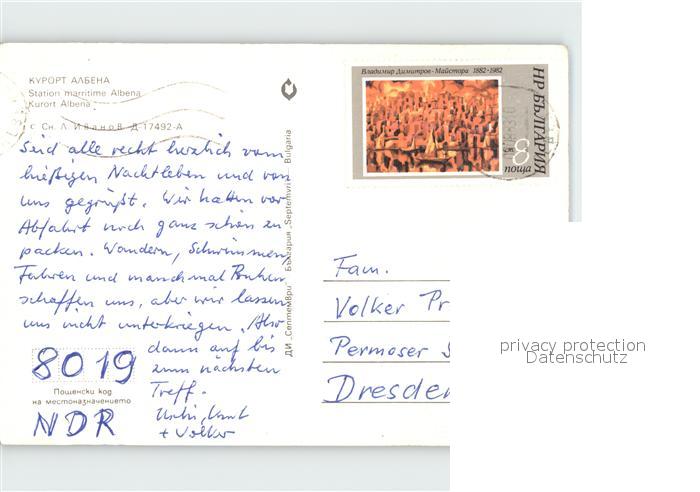 КУРОРТ АЛБЕНА
Station marritime Albena
Kurort Albena
Сн. Л. Иванов Д-17492-А
Seid alle recht herzlich vom
hießigen Nachtleben und von
uns gegrüßt. Wir hatten vor
Abfahrt noch ganz schön zu
packen. Wandern, Schwimmen,
Fahren und manchmal
schaffen uns, aber wir lassen
uns nicht unterkriegen. Also
dann auf bis
zum nächsten
Treff.
+ Volker
8019
Пощенски код
на местоназначението
NDR
ДИ „Септември" България „Septemvri" Bulgaria
Владимир Димитров-Майстора 1882·1982
НР БЪЛГАРИЯ
8 ст
поща
Fam.
Volker Pr
Permoser S
Dresden
privacy protection
Datenschutz